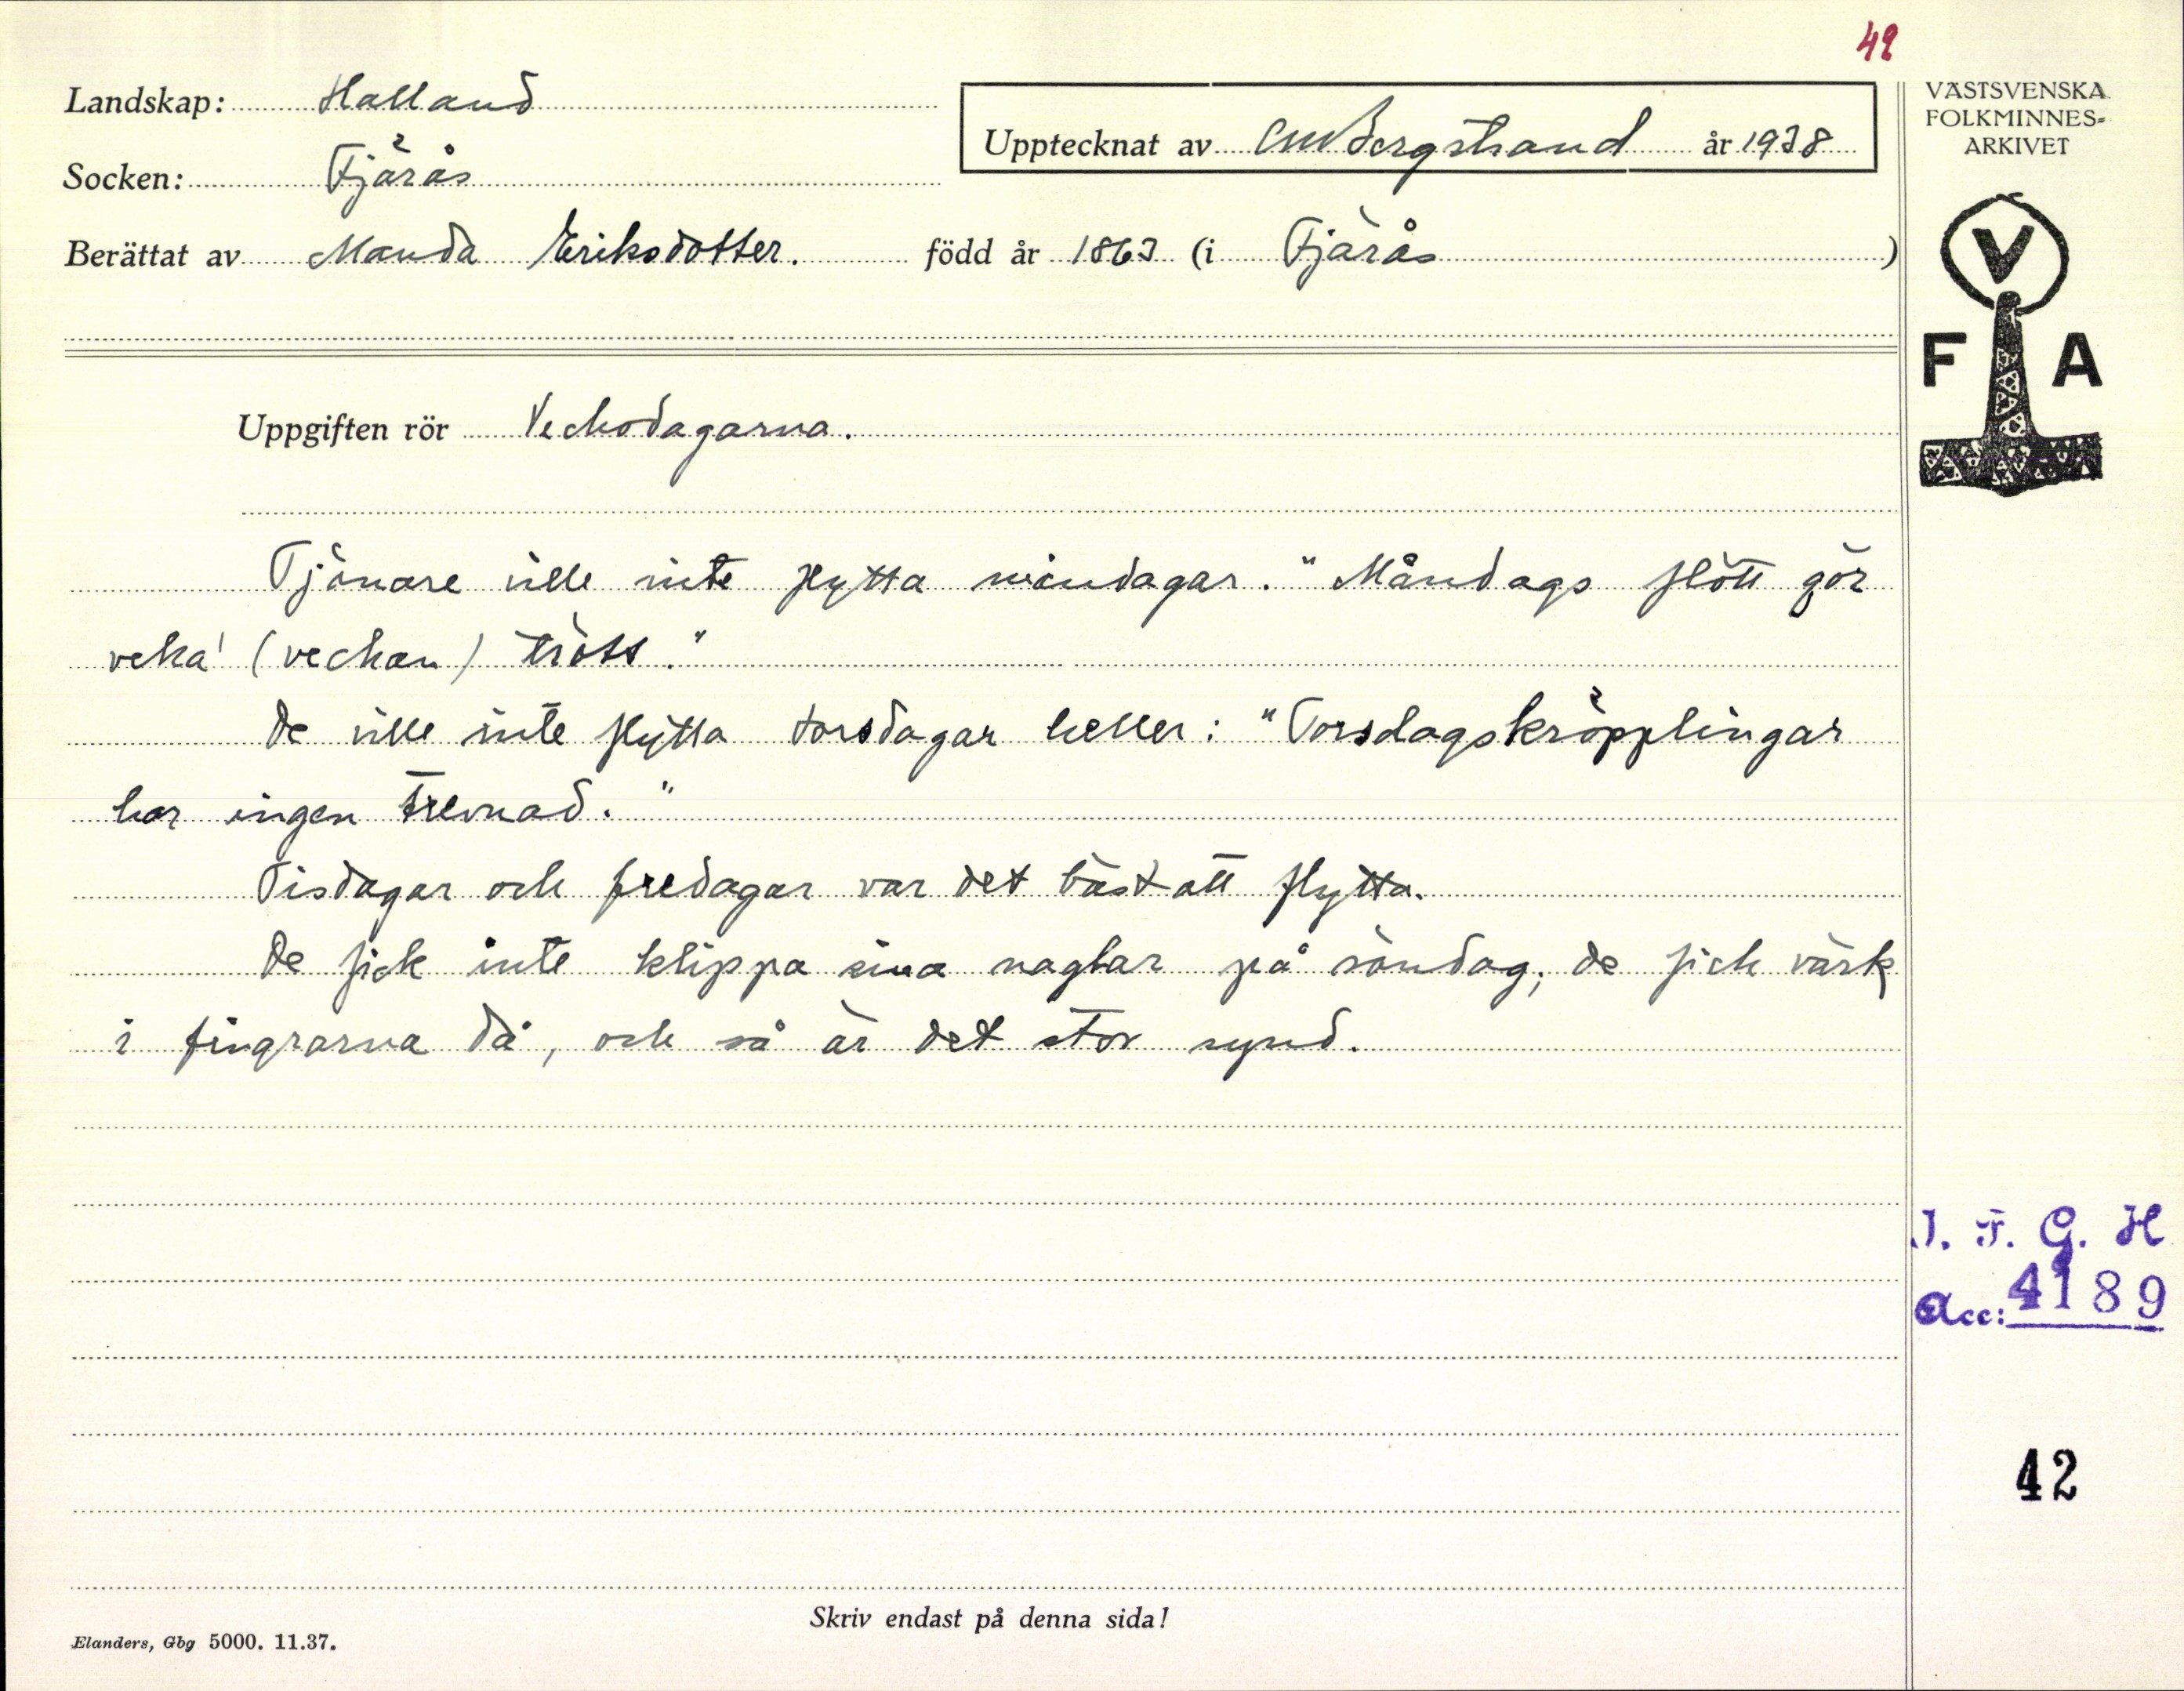 42
Landskap: Halland
Upptecknat av CM Bergstrand år 1938
Socken: Fjärås
Berättat av Manda Eriksdotter. född år 1863 (i Fjärås )
VÄSTSVENSKA
FOLKMINNES-
ARKIVET
V
F A
Uppgiften rör Veckodagarna.
Tjänare ville inte flytta måndagar. "Måndags flött gör
veka' (veckan) trött."
De ville inte flytta torsdagar heller: "Torsdagskröpplingar
har ingen trevnad."
Tisdagar och fredagar var det bäst att flytta.
De fick inte klippa sina naglar på söndag, de fick värk
i fingrarna då, och så är det stor synd.
I. F. G. H
Acc: 4189
42
Skriv endast på denna sida!
Elanders, Gbg 5000. 11.37.